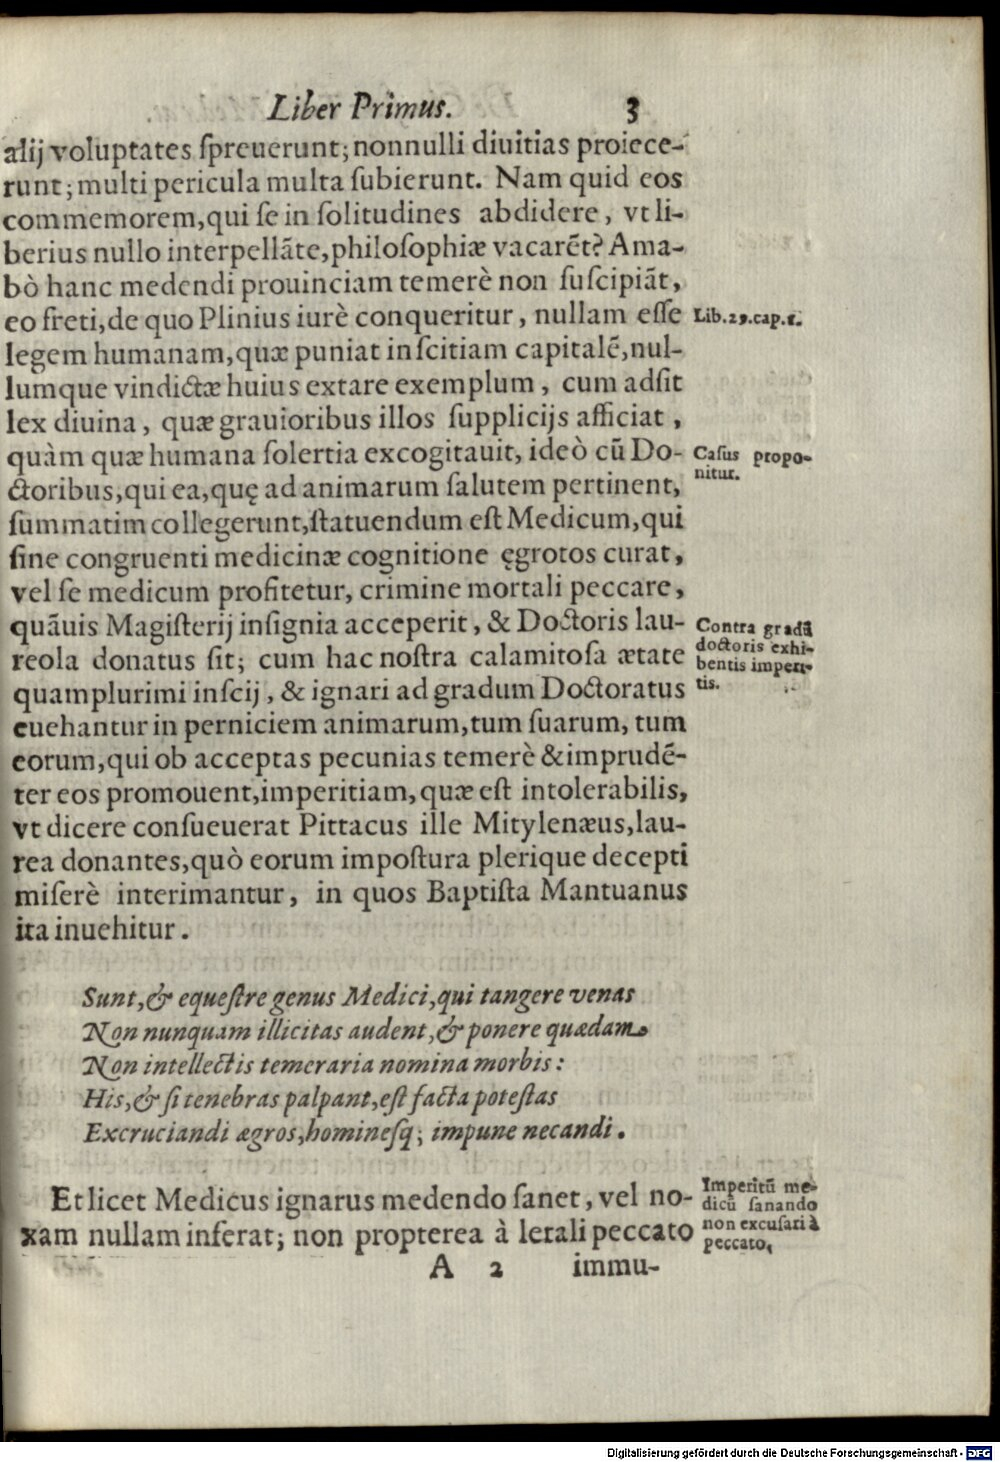 Liber Primus. 3
alij voluptates ſpreuerunt; nonnulli diuitias proiece-
runt; multi pericula multa ſubierunt. Nam quid eos
commemorem, qui ſe in ſolitudines abdidere, vt li-
berius nullo interpellāte, philoſophiæ vacarēt? Ama-
bò hanc medendi prouinciam temerè non ſuſcipiāt,
eo freti, de quo Plinius iurè conqueritur, nullam eſſe
Lib. 29. cap. 1.
legem humanam, quæ puniat inſcitiam capitalē, nul-
lumque vindictæ huius extare exemplum, cum adſit
lex diuina, quæ grauioribus illos ſupplicijs afficiat,
quàm quæ humana ſolertia excogitauit, ideò cū Do-
Caſus propo-
nitur.
ctoribus, qui ea, quę ad animarum ſalutem pertinent,
ſummatim collegerunt, ſtatuendum eſt Medicum, qui
ſine congruenti medicinæ cognitione ęgrotos curat,
vel ſe medicum profitetur, crimine mortali peccare,
quāuis Magiſterij inſignia acceperit, & Doctoris lau-
Contra gradū
doctoris exhi-
bentis imperi-
tis.
reola donatus ſit; cum hac noſtra calamitoſa ætate
quamplurimi inſcij, & ignari ad gradum Doctoratus
euehantur in perniciem animarum, tum ſuarum, tum
eorum, qui ob acceptas pecunias temerè & imprudē-
ter eos promouent, imperitiam, quæ eſt intolerabilis,
vt dicere conſueuerat Pittacus ille Mitylenæus, lau-
rea donantes, quò eorum impoſtura plerique decepti
miſerè interimantur, in quos Baptiſta Mantuanus
ita inuehitur.
Sunt, & equeſtre genus Medici, qui tangere venas
Non nunquam illicitas audent, & ponere quædam
Non intellectis temeraria nomina morbis:
His, & ſi tenebras palpant, eſt facta poteſtas
Excruciandi ægros, homineſq; impune necandi.
Et licet Medicus ignarus medendo ſanet, vel no-
xam nullam inferat; non propterea à letali peccato
Imperitū me-
dicū ſanando
non excuſari à
peccato.
A 2 immu-
Digitalisierung gefördert durch die Deutsche Forschungsgemeinschaft - DFG